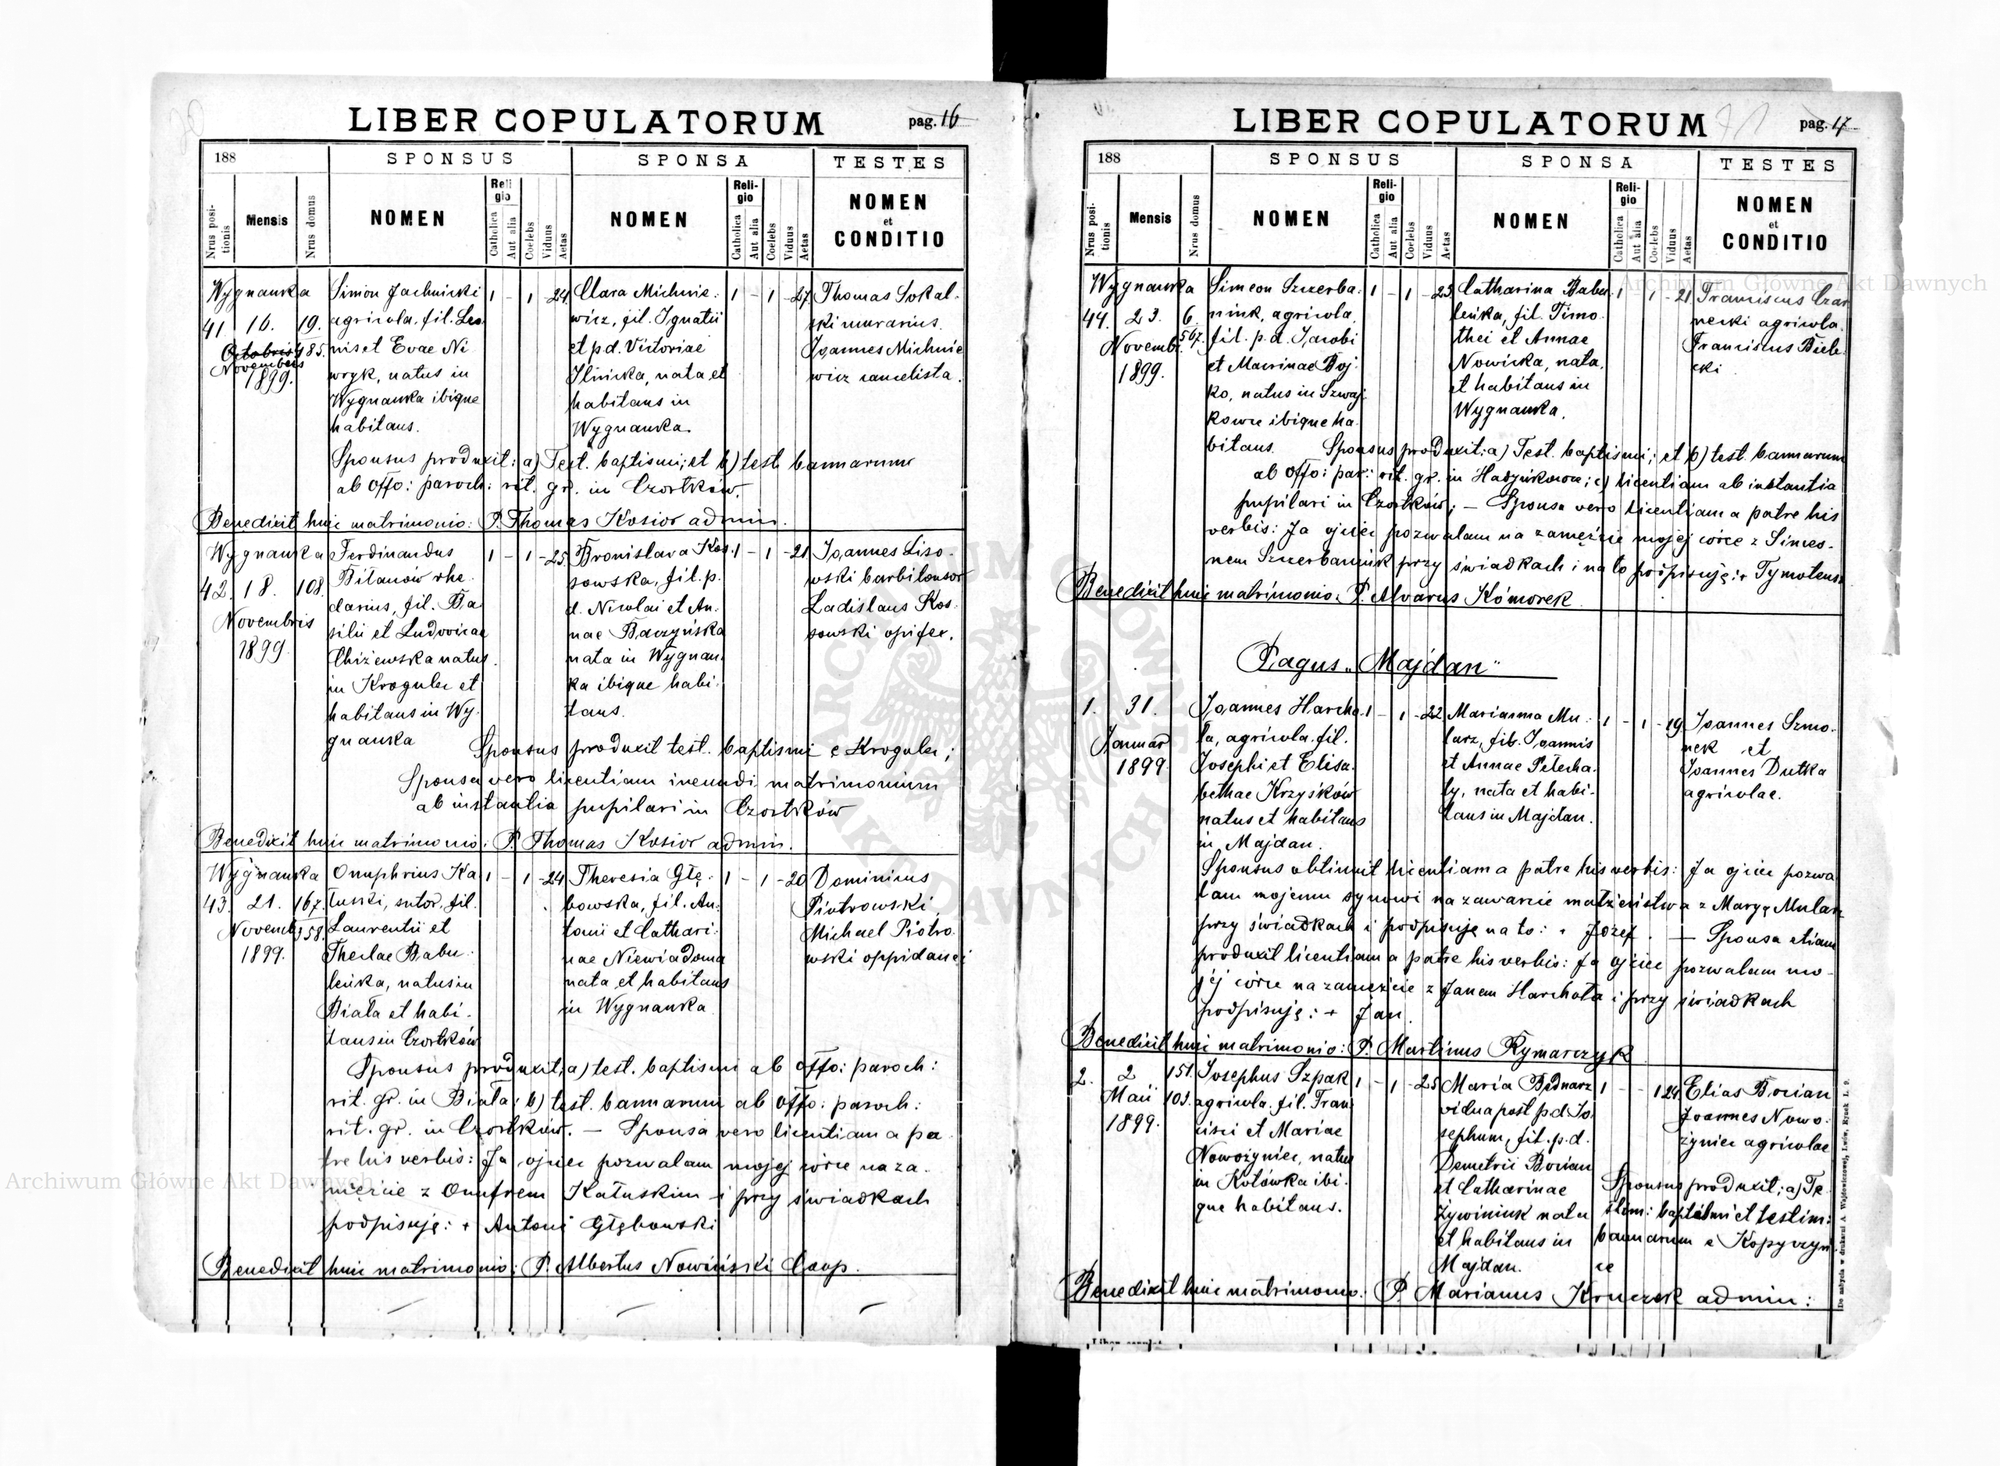 LIBER COPULATORUM
pag. 16
188
SPONSUS
SPONSA
TESTES
Nrus positionis
Mensis
Nrus domus
NOMEN
Religio
Catholica
Aut alia
Coelebs
Viduus
Aetas
NOMEN
Religio
Catholica
Aut alia
Coelebs
Viduus
Aetas
NOMEN
et
CONDITIO
Wygnanka
41 16. 19.
Octobris 485.
Novembris
1899.
Simon Jachnicki
agricola, fil. Leo
nis et Evae Ni
wryk, natus in
Wygnanka ibique
habitans.
1 - 1 - 24
Clara Michnie-
wicz, fil. Ignatii
et p.d. Victoriae
Ilnicka, nata et
habitans in
Wygnanka.
1 - 1 - 27
Thomas Sokal-
ski murarius.
Joannes Michnie
wicz cancelista.
Sponsus produxit: a) Test. baptismi; et b) test. bannorum
ab offo: paroch: rit. gr. in Czortków.
Benedixit huic matrimonio: P. Thomas Kosior admin.
Wygnanka
42. 18. 108.
Novembris
1899.
Ferdinandus
Bitanów rhe-
darius, fil. Ba
silii et Ludovicae
Chiżewska natus
in Kroguler et
habitans in Wy-
gnanka
1 - 1 - 25
Bronislava Kos-
sowska, fil. p.
d. Nicolai et An-
nae Baczyńska
nata in Wygnan-
ka ibique habi-
tans.
1 - 1 - 21
Joannes Liso-
wski barbitonsor
Ladislaus Kos-
sowski opifex.
Sponsus produxit test. baptismi e Kroguler;
Sponsa vero licentiam ineundi matrimonium
ab instantia pupilari in Czortków
Benedixit huic matrimonio: P. Thomas Kosior admin.
Wygnanka
43. 21. 167.
Novemb. 358.
1899.
Onuphrius Ka
łuski, sutor, fil.
Laurentii et
Theclae Babu-
leńka, natus in
Biała et habi-
tans in Czortków
1 - 1 - 24
Theresia Głę-
bowska, fil. An-
tonii et Cathari-
nae Niewiadoma
nata et habitans
in Wygnanka
1 - 1 - 20
Dominicus
Piotrowski
Michael Piotro
wski oppidanei
Sponsus produxit; a) test. baptismi ab offo: paroch:
rit. gr. in Biała; b) test. bannorum ab offo: paroch:
rit. gr. in Czortków. — Sponsa vero licentiam a pa
tre his verbis: Ja ojciec pozwalam mojej córce na za-
mężcie z Onufrem Kałuskim i przy świadkach
podpisuję: + Antoni Głębowski
Benedixit huic matrimonio: P. Albertus Nowiński Coop.
LIBER COPULATORUM
pag. 17
188
SPONSUS
SPONSA
TESTES
Nrus positionis
Mensis
Nrus domus
NOMEN
Religio
Catholica
Aut alia
Coelebs
Viduus
Aetas
NOMEN
Religio
Catholica
Aut alia
Coelebs
Viduus
Aetas
NOMEN
et
CONDITIO
Wygnanka
44. 23. 6
Novemb. 567.
1899.
Simeon Szczerba-
niuk, agricola,
fil. p.d. Jacobi
et Marinae Boj-
ko, natus in Szwaj-
kowce ibique ha-
bitans.
1 - 1 - 23
Catharina Babu-
leńka, fil. Timo-
thei et Annae
Nowicka, nata,
et habitans in
Wygnanka.
1 1 - 21
Franciscus Czar
necki agricola.
Franciscus Biele-
cki.
Sponsus produxit: a) Test. baptismi; et b) test. bannorum
ab offo: par: rit. gr. in Hadyńkowce; c) licentiam ab instantia
pupilari in Czortków; — Sponsa vero licentiam a patre his
verbis: Ja ojciec pozwalam na zamężcie mojej córce z Simeo-
nem Szczerbaniuk przy świadkach i na to podpisuję: + Tymoteusz
Benedixit huic matrimonio: P. Alvarus Kómorek.
Pagus „Majdan"
1. 31.
Januar
1899.
Joannes Harcho-
ła, agricola, fil.
Josephi et Elisa-
bethae Krzyśków
natus et habitans
in Majdan.
1 - 1 - 22
Marianna Mu-
larz, fil. Joannis
et Annae Petecha-
ły, nata et habi-
tans in Majdan.
1 - 1 - 19
Joannes Szmo-
nek et
Joannes Dutka
agricolae.
Sponsus obtinuit licentiam a patre his verbis: Ja ojciec pozwa
lam mojemu synowi na zawarcie małżeństwa z Maryą Mularz
przy świadkach i podpisuję na to: + Józef. — Sponsa etiam
produxit licentiam a patre his verbis: Ja ojciec pozwalam mo-
jéj córce na zamężcie z Janem Harchoła i przy świadkach
podpisuję: + Jan.
Benedixit huic matrimonio: P. Martinus Rymarczyk
2. 2 151.
Maii 103.
1899.
Josephus Szpak
agricola, fil. Fran-
cisci et Mariae
Nowożyniec, natus
in Kotówka ibi-
que habitans.
1 - 1 - 25
Maria Bednarz
vidua post p.d. Jo
sephum, fil. p.d.
Demetrii Borian
et Catharinae
Żywiniuk nata
et habitans in
Majdan.
1 - - 1 24
Elias Borian
Joannes Nowo-
żyniec agricolae
Sponsus produxit; a) Te-
stim: baptismi et testim:
bannorum e Kopyczyń-
ce
Benedixit huic matrimonio: P. Marianus Kruczek admin:
Do nabycia w drukarni A. Wajdowiczowej, Lwów, Rynek L. 9.
Archiwum Główne Akt Dawnych
Archiwum Główne Akt Dawnych
ARCHIWUM GŁÓWNE AKT DAWNYCH